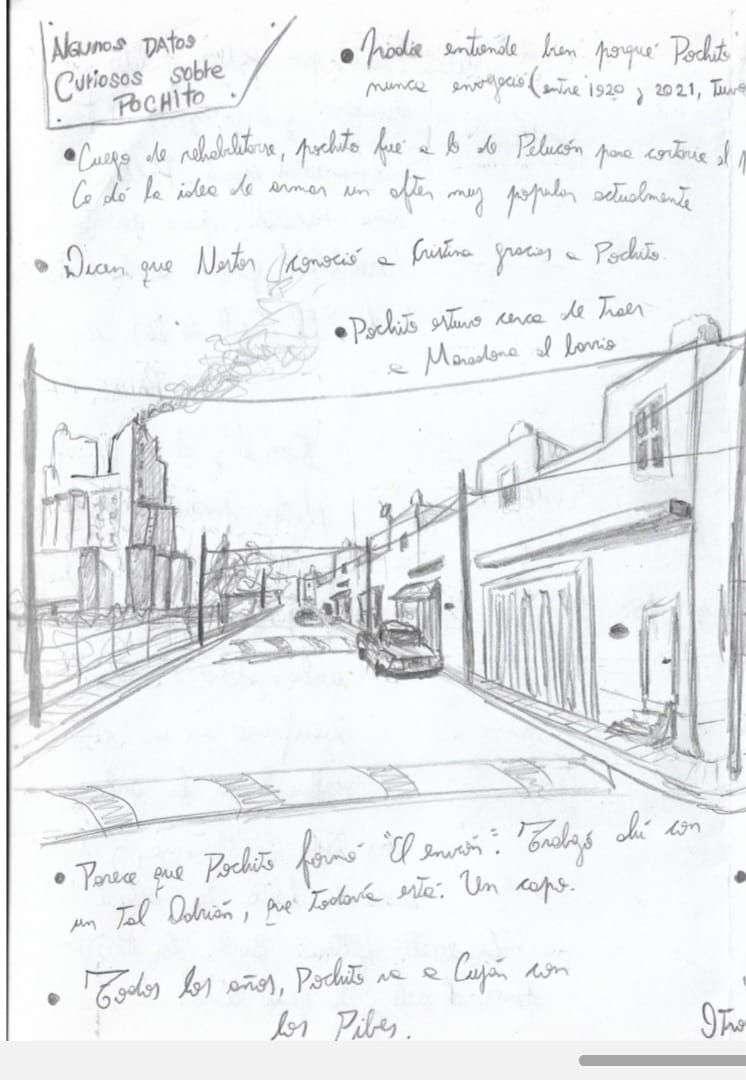 ALGUNOS DATOS
CURIOSOS sobre
POCHITO
• Nadie entiende bien porqué Pochito
nunca envegeció (entre 1920 y 2021, Tuvo
• Luego de rehabilitarse, pochito fué a lo de Pelucón para cortarse el
Le dó la idea de armar un after muy popular actualmente
• Dicen que Nestor conoció a Cristina gracias a Pochito.
• Pochito estuvo cerca de Traer
a Maradona al barrio
• Parece que Pochito formó "El envión". Trabajó ahí con
un Tal Adrián, que todavía está. Un capo.
• Todos los años, Pochito va a Luján con
los Pibes.